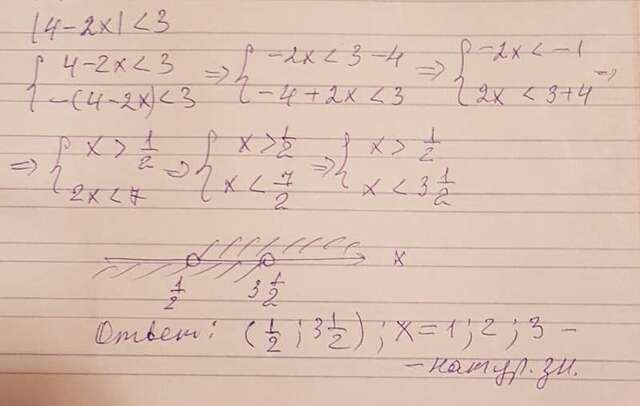 |4-2x|<3
{ 4-2x<3 => { -2x<3-4 => { -2x<-1 =>
-(4-2x)<3 -4+2x<3 2x<3+4
=> { x>1/2 => { x>1/2 => { x>1/2
2x<7 x<7/2 x<3 1/2
x
1/2 3 1/2
Ответ: (1/2; 3 1/2); x=1; 2; 3 -
- натур. зн.